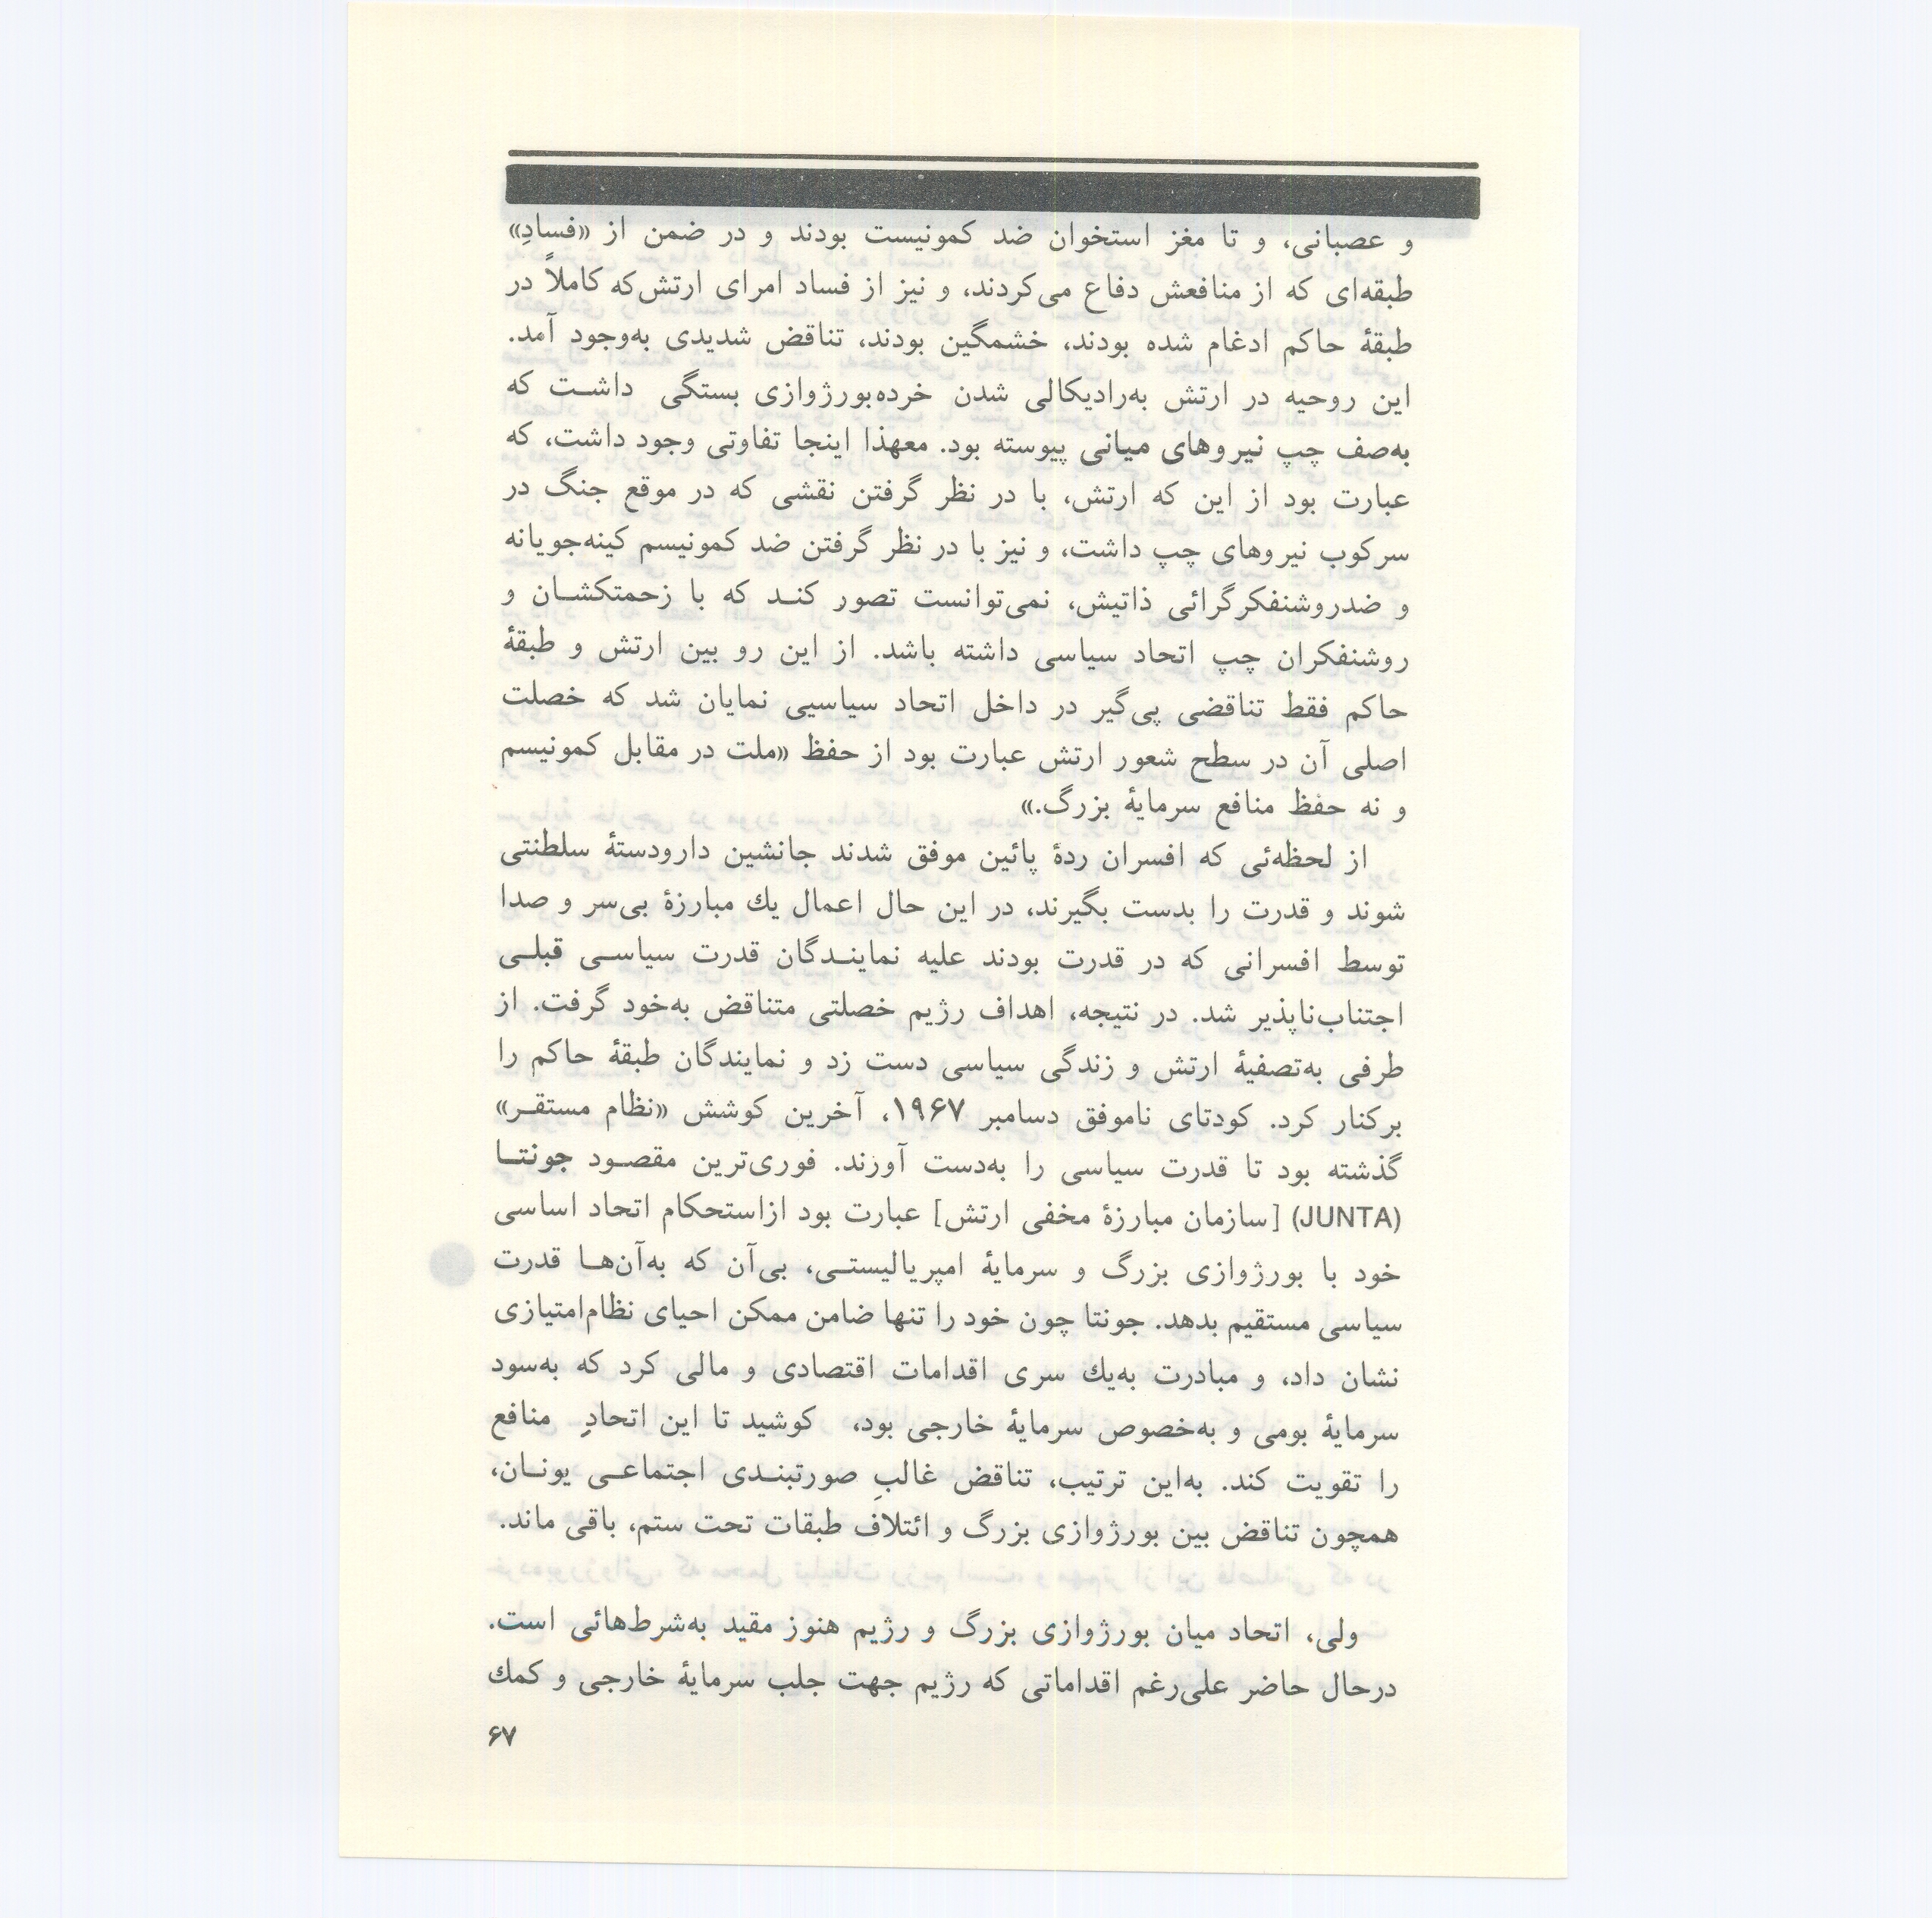 و عصبانی، و تا مغز استخوان ضد کمونیست بودند و در ضمن از «فسادِ»
طبقه‌ای که از منافعش دفاع می‌کردند، و نیز از فساد امرای ارتش‌که کاملاً در
طبقهٔ حاکم ادغام شده بودند، خشمگین بودند، تناقض شدیدی به‌وجود آمد.
این روحیه در ارتش به‌رادیکالی شدن خرده‌بورژوازی بستگی داشت که
به‌صف چپ نیروهای میانی پیوسته بود. معهذا اینجا تفاوتی وجود داشت، که
عبارت بود از این که ارتش، با در نظر گرفتن نقشی که در موقع جنگ در
سرکوب نیروهای چپ داشت، و نیز با در نظر گرفتن ضد کمونیسم کینه‌جویانه
و ضدروشنفکرگرائی ذاتیش، نمی‌توانست تصور کند که با زحمتکشان و
روشنفکران چپ اتحاد سیاسی داشته باشد. از این رو بین ارتش و طبقهٔ
حاکم فقط تناقضی پی‌گیر در داخل اتحاد سیاسیی نمایان شد که خصلت
اصلی آن در سطح شعور ارتش عبارت بود از حفظ «ملت در مقابل کمونیسم
و نه حفظ منافع سرمایهٔ بزرگ.»
از لحظه‌ئی که افسران ردهٔ پائین موفق شدند جانشین دارودستهٔ سلطنتی
شوند و قدرت را بدست بگیرند، در این حال اعمال یك مبارزهٔ بی‌سر و صدا
توسط افسرانی که در قدرت بودند علیه نمایندگان قدرت سیاسی قبلی
اجتناب‌ناپذیر شد. در نتیجه، اهداف رژیم خصلتی متناقض به‌خود گرفت. از
طرفی به‌تصفیهٔ ارتش و زندگی سیاسی دست زد و نمایندگان طبقهٔ حاکم را
برکنار کرد. کودتای ناموفق دسامبر ۱۹۶۷، آخرین کوشش «نظام مستقر»
گذشته بود تا قدرت سیاسی را به‌دست آورند. فوری‌ترین مقصود جونتا
(JUNTA) [سازمان مبارزهٔ مخفی ارتش] عبارت بود ازاستحکام اتحاد اساسی
خود با بورژوازی بزرگ و سرمایهٔ امپریالیستی، بی‌آن که به‌آن‌ها قدرت
سیاسی مستقیم بدهد. جونتا چون خود را تنها ضامن ممکن احیای نظام‌امتیازی
نشان داد، و مبادرت به‌یك سری اقدامات اقتصادی و مالی کرد که به‌سود
سرمایهٔ بومی و به‌خصوص سرمایهٔ خارجی بود، کوشید تا این اتحادِ منافع
را تقویت کند. به‌این ترتیب، تناقض غالبِ صورتبندی اجتماعی یونان،
همچون تناقض بین بورژوازی بزرگ و ائتلاف طبقات تحت ستم، باقی ماند.
ولی، اتحاد میان بورژوازی بزرگ و رژیم هنوز مقید به‌شرط‌هائی است.
درحال حاضر علی‌رغم اقداماتی که رژیم جهت جلب سرمایهٔ خارجی و کمك
۶۷